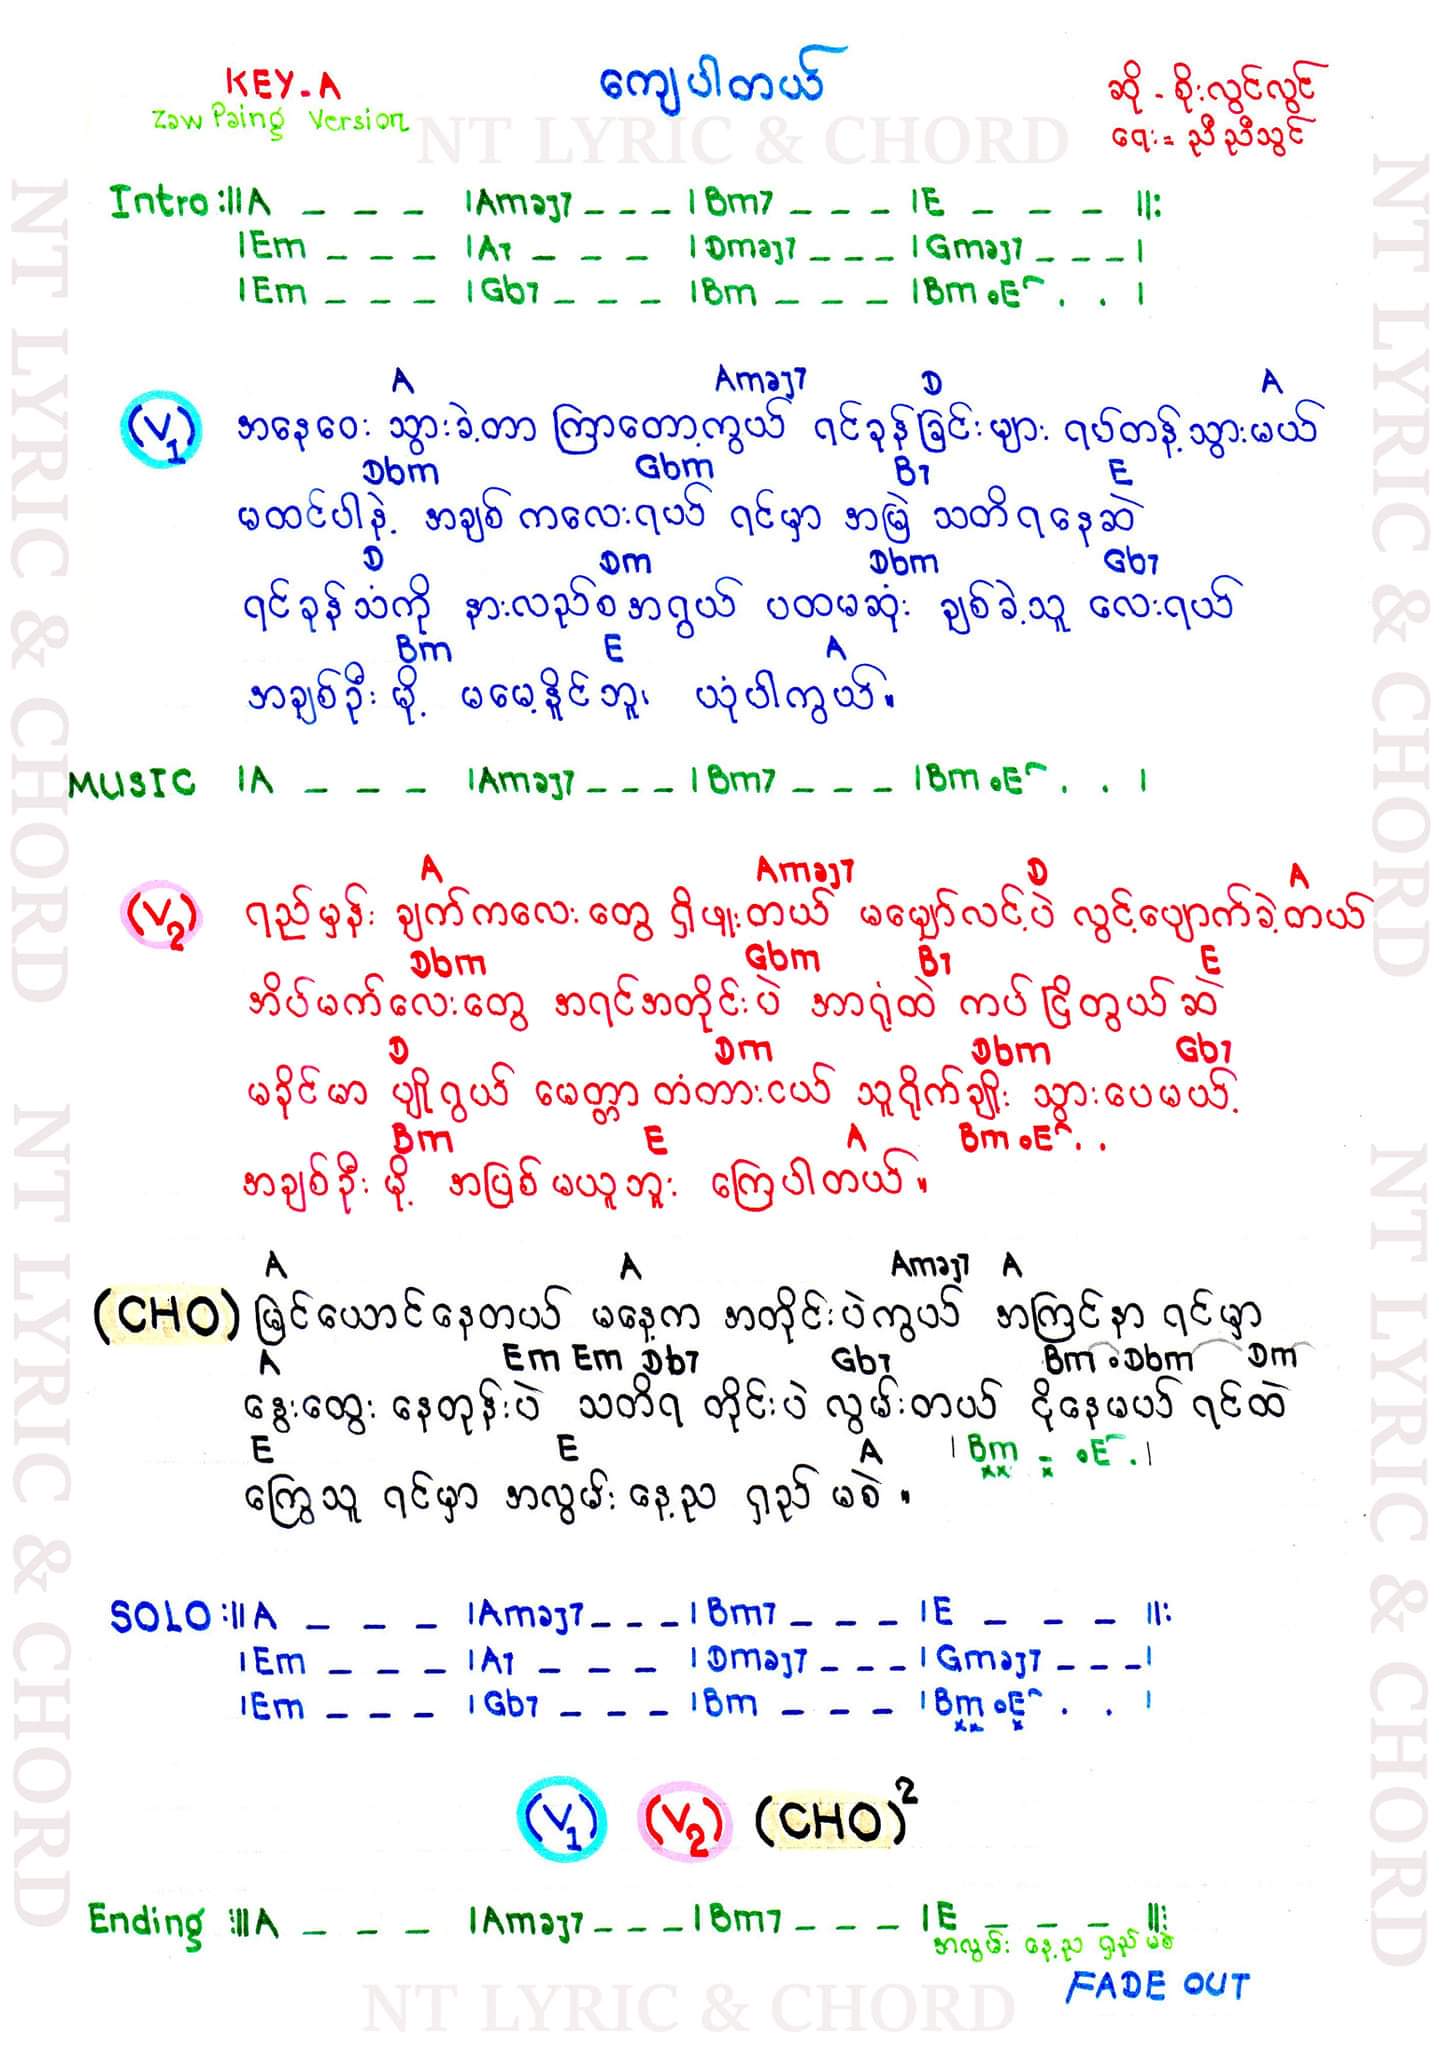 KEY-A
ကျေပါတယ်
ဆို - စိုးလွင်လွင်
Zaw Paing Version
ရေး = ညီညီသွင်
NT LYRIC & CHORD
Intro :||A _ _ _ |Amaj7 _ _ _ |Bm7 _ _ _ |E _ _ _ ||:
|Em _ _ _ |A7 _ _ _ |Dmaj7 _ _ _ |Gmaj7 _ _ _ |
|Em _ _ _ |Gb7 _ _ _ |Bm _ _ _ |Bm •E . . |
A Amaj7 D A
(V1) အနေဝေး သွားခဲ့တာ ကြာတော့ကွယ် ရင်ခုန်ခြင်းများ ရပ်တန့်သွားမယ်
Dbm Gbm B7 E
မထင်ပါနဲ့ အချစ်ကလေးရယ် ရင်မှာ အမြဲ သတိရနေဆဲ
D Dm Dbm Gb7
ရင်ခုန်သံကို နားလည်စအရွယ် ပထမဆုံး ချစ်ခဲ့သူ လေးရယ်
Bm E A
အချစ်ဦး မို့ မမေ့နိူင်ဘူး ယုံပါကွယ်။
MUSIC |A _ _ _ |Amaj7 _ _ _ |Bm7 _ _ _ |Bm •E . . |
A Amaj7 D A
(V2) ရည်မှန်း ချက်ကလေး တွေ ရှိဖူးတယ် မမျှော်လင့်ပဲ လွင့်ပျောက်ခဲ့တယ်
Dbm Gbm B7 E
အိပ်မက်လေးတွေ အရင်အတိုင်းပဲ အာရုံထဲ ကပ်ငြိတွယ်ဆဲ
D Dm Dbm Gb7
မခိုင်မာ ပျိုရွယ် မေတ္တာ တံတားငယ် သူရိုက်ချိုး သွားပေမယ့်
Bm E A Bm •E . .
အချစ်ဦး မို့ အပြစ်မယူဘူး ကြေပါတယ်။
A A Amaj7 A
(CHO) မြင်ယောင်နေတယ် မနေ့က အတိုင်းပဲကွယ် အကြင်နာ ရင်မှာ
A Em Em Db7 Gb7 Bm •Dbm Dm
နွေးထွေး နေတုန်းပဲ သတိရ တိုင်းပဲ လွမ်းတယ် ငိုနေမယ် ရင်ထဲ
E E A |Bm = •E . |
ကြွေသူ ရင်မှာ အလွမ်း နေ့ည ရှည် မစဲ။
SOLO :||A _ _ _ |Amaj7 _ _ _ |Bm7 _ _ _ |E _ _ _ ||:
|Em _ _ _ |A7 _ _ _ |Dmaj7 _ _ _ |Gmaj7 _ _ _ |
|Em _ _ _ |Gb7 _ _ _ |Bm _ _ _ |Bm •E . . |
(V1) (V2) (CHO)2
Ending :||A _ _ _ |Amaj7 _ _ _ |Bm7 _ _ _ |E _ _ _ ||:
အလွမ်း နေ့ည ရှည် မစဲ
FADE OUT
NT LYRIC & CHORD
NT LYRIC & CHORD
NT LYRIC & CHORD
NT LYRIC & CHORD
NT LYRIC & CHORD